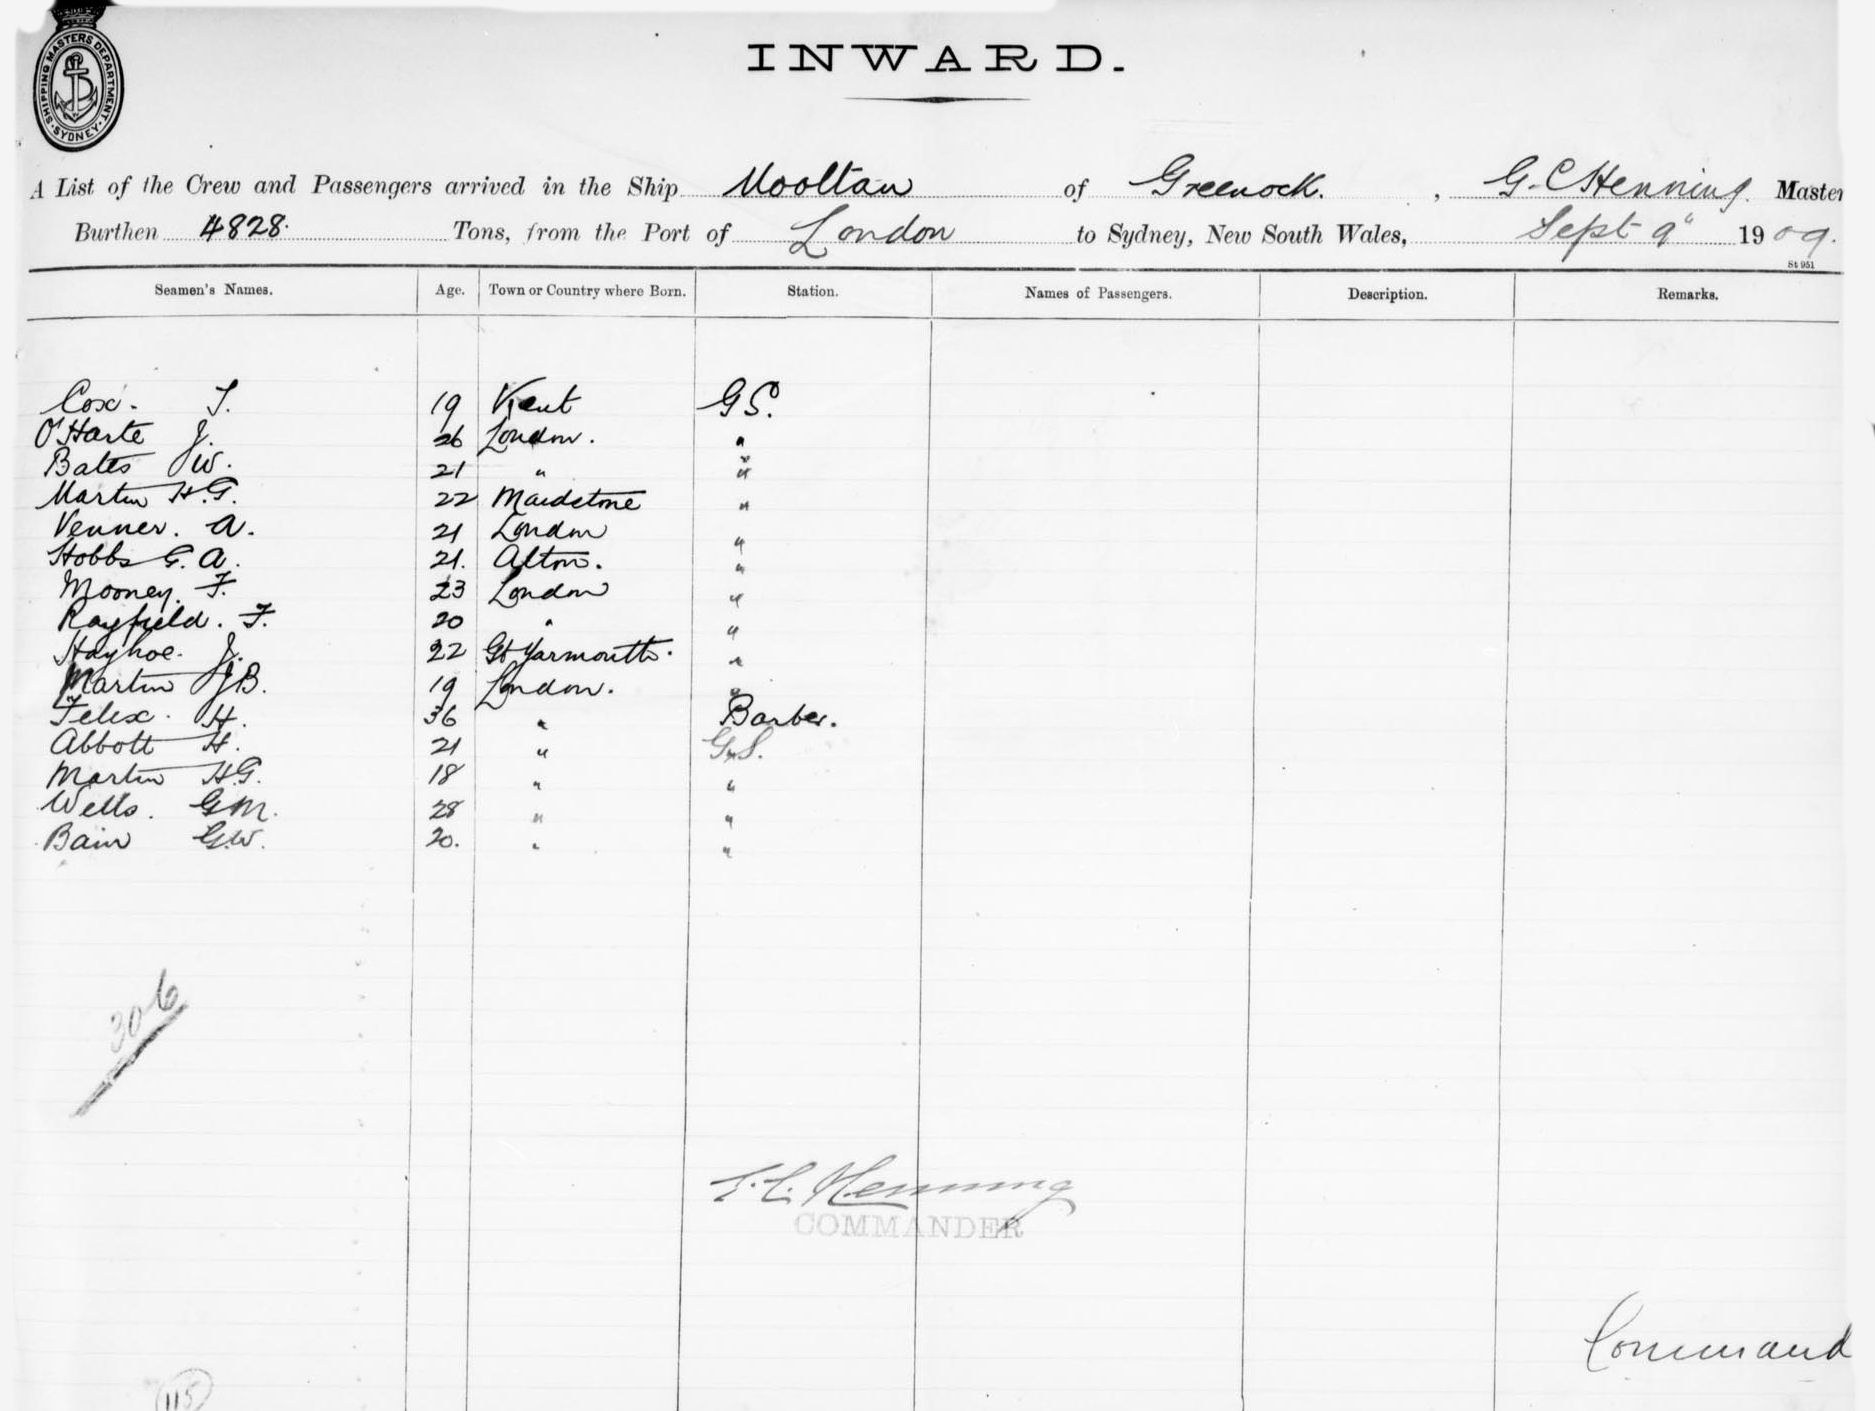 SHIPPING MASTERS DEPARTMENT · SYDNEY ·
INWARD.
A List of the Crew and Passengers arrived in the Ship Mooltan of Greenock. , G. C Henning. Master
Burthen 4828. Tons, from the Port of London to Sydney, New South Wales, Sept 9" 1909.
St 951
Seamen's Names. Age. Town or Country where Born. Station. Names of Passengers. Description. Remarks.
Cox. T. 19 Kent G S.
O'Harte J. 26 London. "
Bates J W. 21 " "
Martin H.G. 22 Maidstone "
Venner. A. 21 London "
Hobbs G. A. 21. Alton. "
Mooney. F. 23 London "
Rayfield. F. 20 " "
Hayhoe. J. 22 Gt Yarmouth. "
Martin J B. 19 London. "
Felix. H. 36 " Barber.
Abbott H. 21 " G.S.
Martin H.G. 18 " "
Wells. G M. 28 " "
Bain G.W. 20. " "
306
G. C. Henning
COMMANDER
Command
115